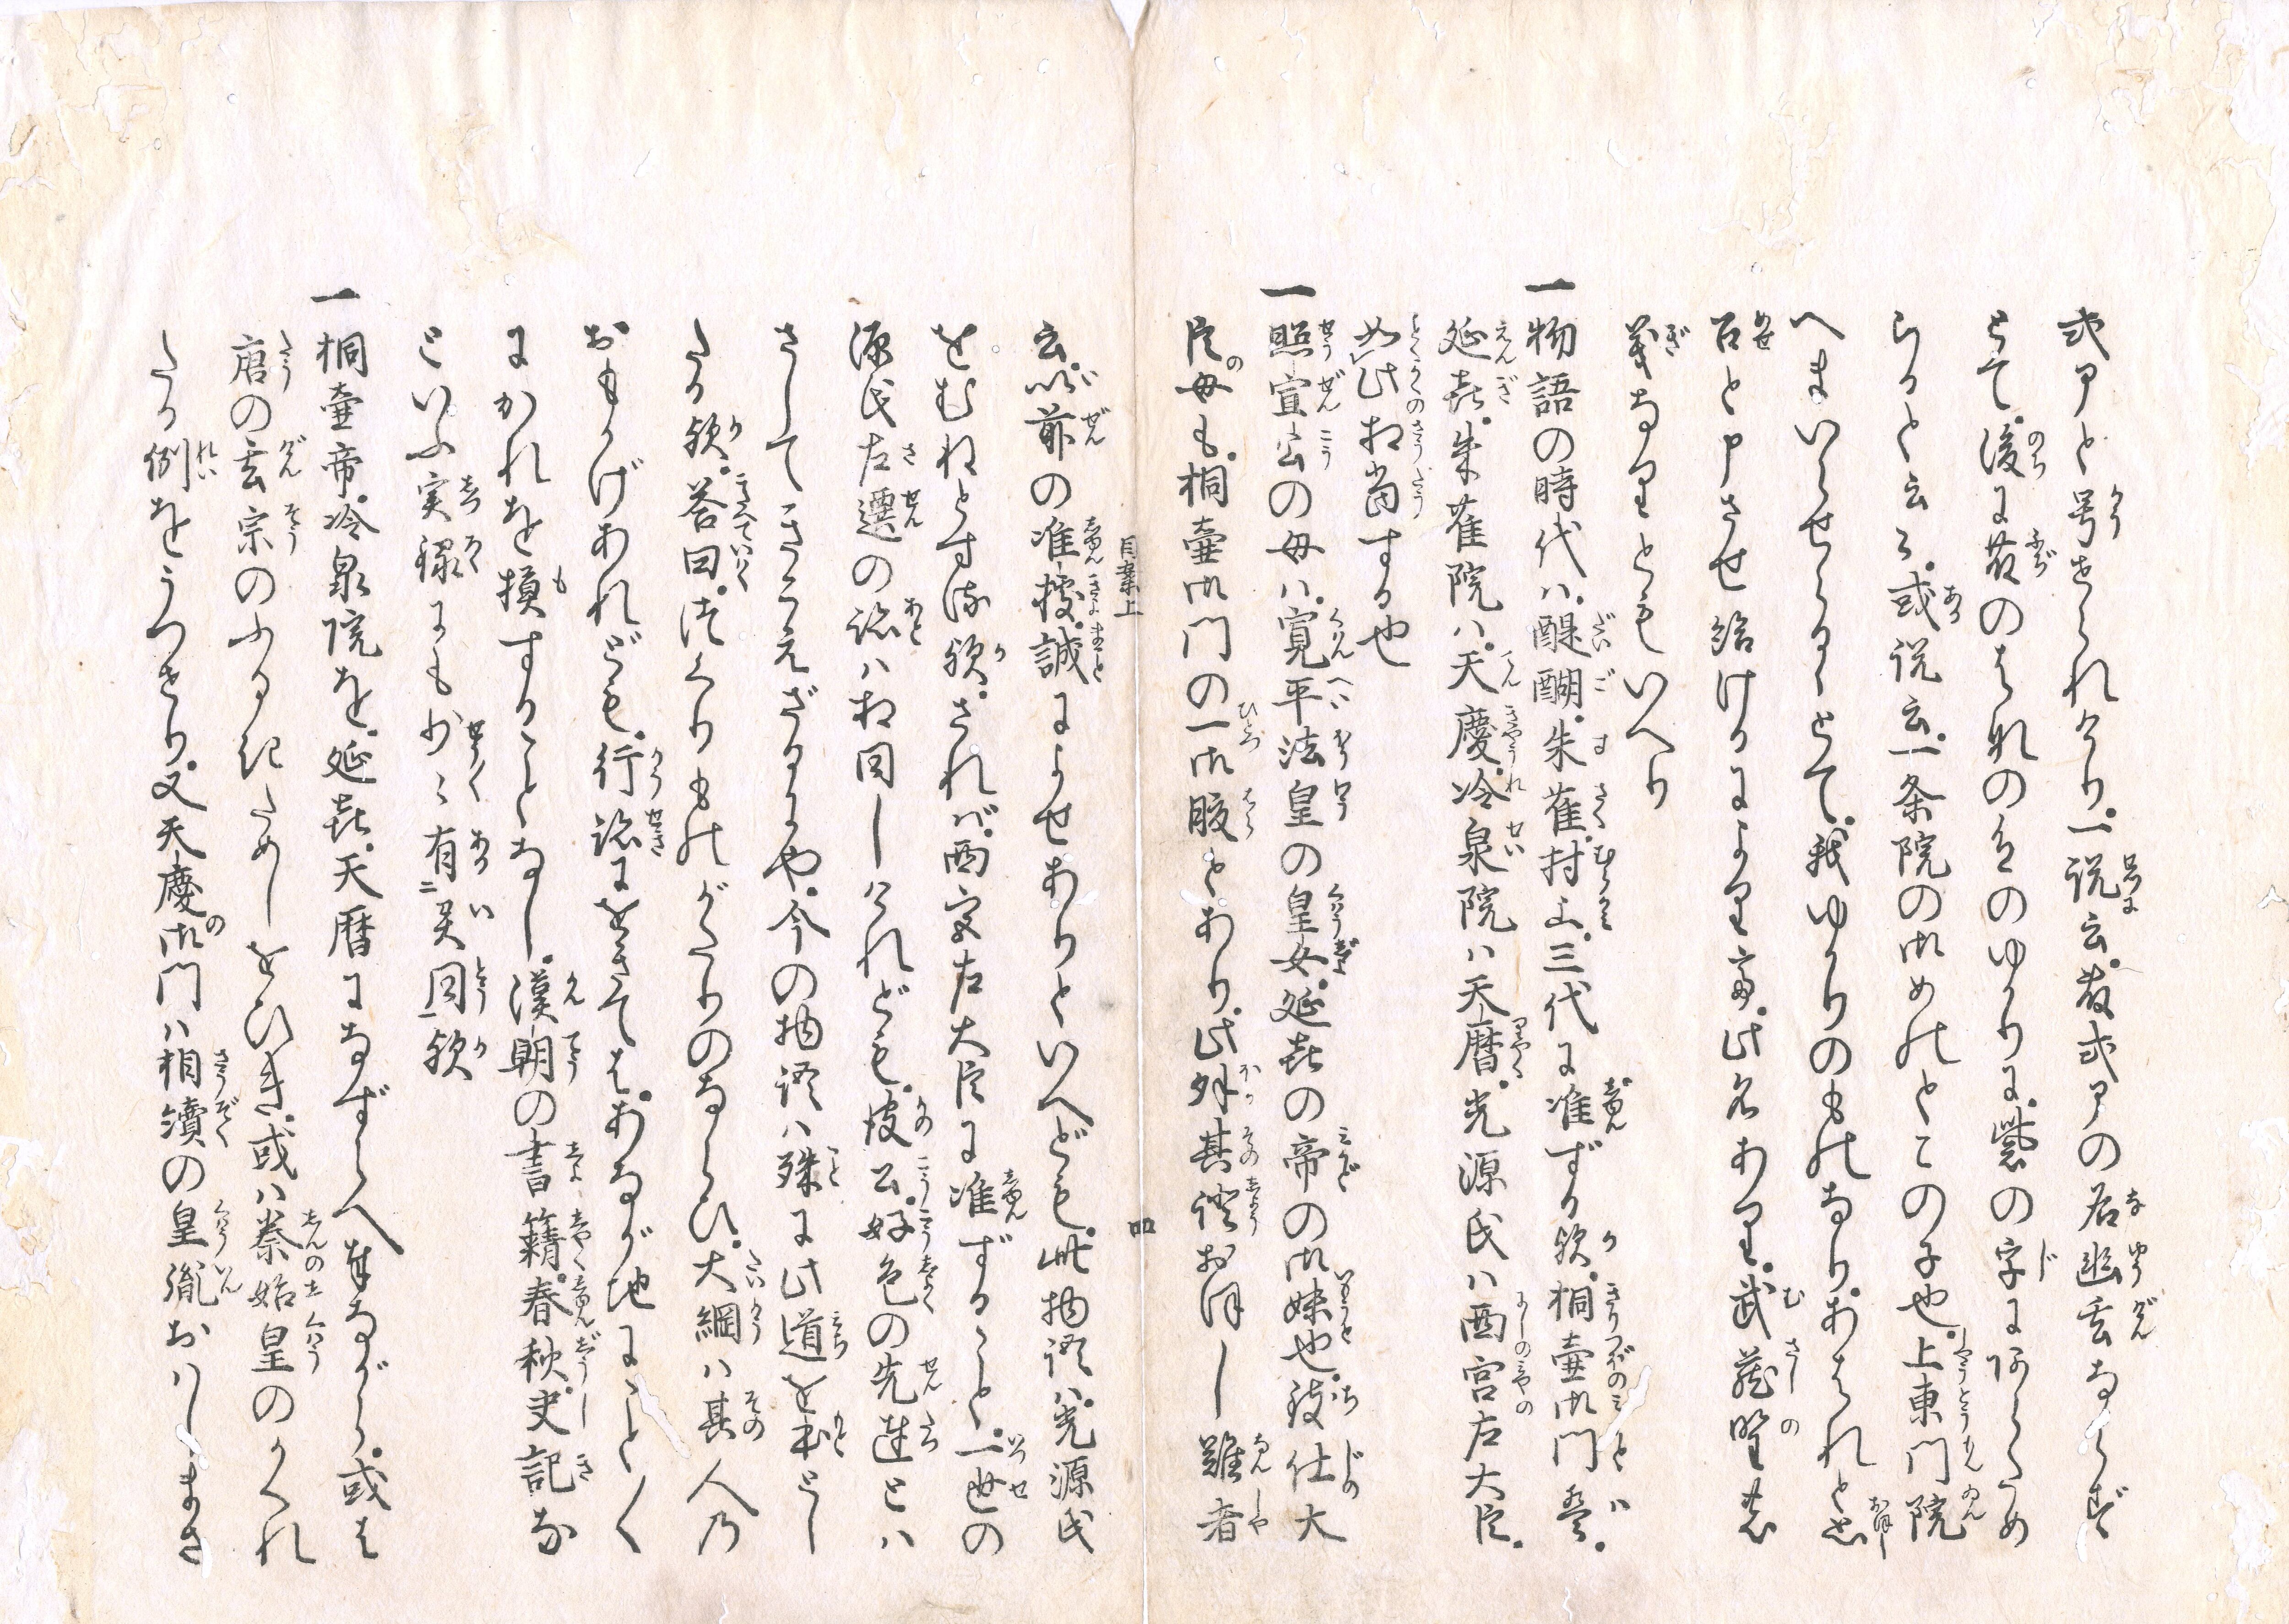 式部と号せられけり。一説云。藤式部の名幽玄ならず
とて。後に藤のはなの色のゆかりに。紫の字にあらため
らると云々。或説云。一条院の御めのとこの子也。上東門院
へまいらせらるゝとて。我ゆかりのものなり。あはれと思
召と申させ給けるにより而。此名あり。武蔵野の
義なりともいへり
一物語の時代ハ。醍醐。朱雀。村上。三代に准ずる歟。桐壷御門ハ。
延喜。朱雀院ハ。天慶。冷泉院ハ天暦。光源氏ハ西宮左大臣。
如此相当する也
一照宣公の母ハ。寛平法皇の皇女。延喜の帝の御妹也。致仕大
臣母も。桐壷御門の一御腹とあり。此外其證おほし難者
目案上
四
云。以前の准拠。誠によせありといへども。此物語ハ。光源氏
をむねとする歟。されバ。西宮左大臣に准ずること。一世の
源氏左遷の跡ハ相同しけれども。彼公。好色の先達とハ
さしてきこえざるにや。今の物語ハ殊に此道を本とし
たる歟。答曰。作りものがたりのならひ。大綱ハ其人の
おもかげあれども。行跡にをきては。あながちにことごと
にかれを摸することなし。漢朝の書籍。春秋。史記な
どいふ実録にも少々有二異同一歟
一桐壷帝。冷泉院を。延喜。天暦になずらへ奉ながら。或は
唐の玄宗のふるきためしをひき。或ハ秦始皇のかくれ
たる例をうつせり。又天慶御門ハ相續の皇胤おハしまさ